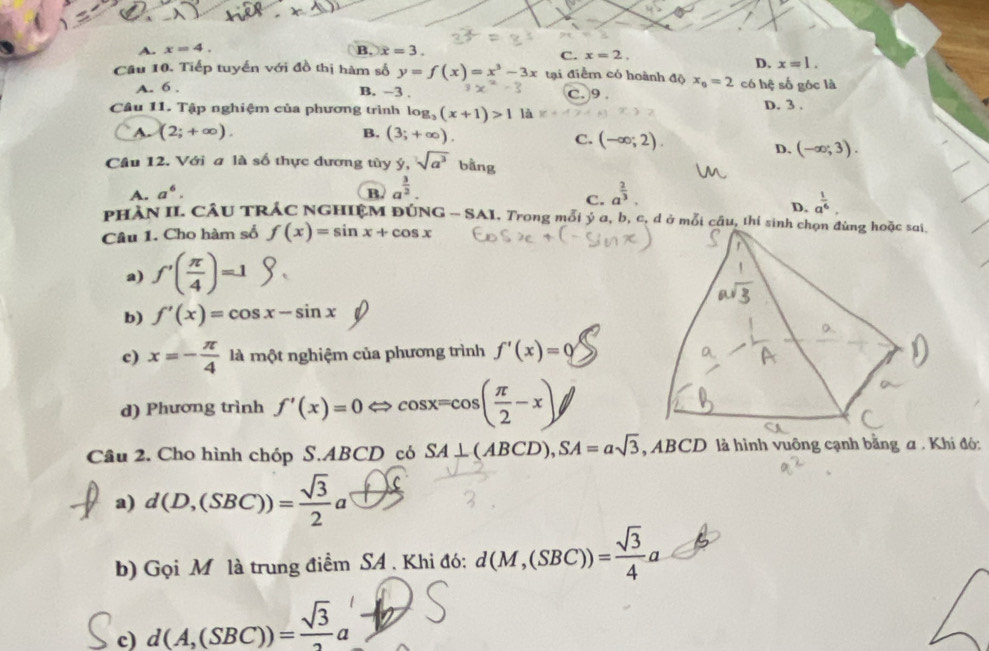 tiếp. x
A. x = 4.
B. x = 3.
C. x = 2.
D. x = 1.
Câu 10. Tiếp tuyến với đồ thị hàm số y = f(x) = x³ − 3x tại điểm có hoành độ x₀ = 2 có hệ số góc là
A. 6.
B. −3.
3x² - 3
C. 9.
D. 3.
Câu 11. Tập nghiệm của phương trình log₃(x+1) > 1 là
A. (2; +∞).
B. (3; +∞).
C. (−∞; 2).
D. (−∞; 3).
Câu 12. Với a là số thực dương tùy ý, √(a³) bằng
A. a⁶.
B. a^(3/2).
C. a^(2/3).
D. a^(1/6).
PHẦN II. CÂU TRẮC NGHIỆM ĐÚNG – SAI. Trong mỗi ý a, b, c, d ở mỗi câu, thí sinh chọn đúng hoặc sai.
Câu 1. Cho hàm số f(x) = sin x + cos x cosx + (-sinx)
a) f'(π/4) = 1 S.
b) f'(x) = cos x − sin x Đ
c) x = −π/4 là một nghiệm của phương trình f'(x) = 0 S
d) Phương trình f'(x) = 0 ⇔ cosx = cos(π/2 − x) Đ
S
a√3
a
A
a
D
B
a
a
C
Câu 2. Cho hình chóp S.ABCD có SA ⊥ (ABCD), SA = a√3, ABCD là hình vuông cạnh bằng a. Khi đó:
a²
Đ a) d(D,(SBC)) = √3/2 a
b) Gọi M là trung điểm SA. Khi đó: d(M,(SBC)) = √3/4 a
S c) d(A,(SBC)) = √3/2 a S